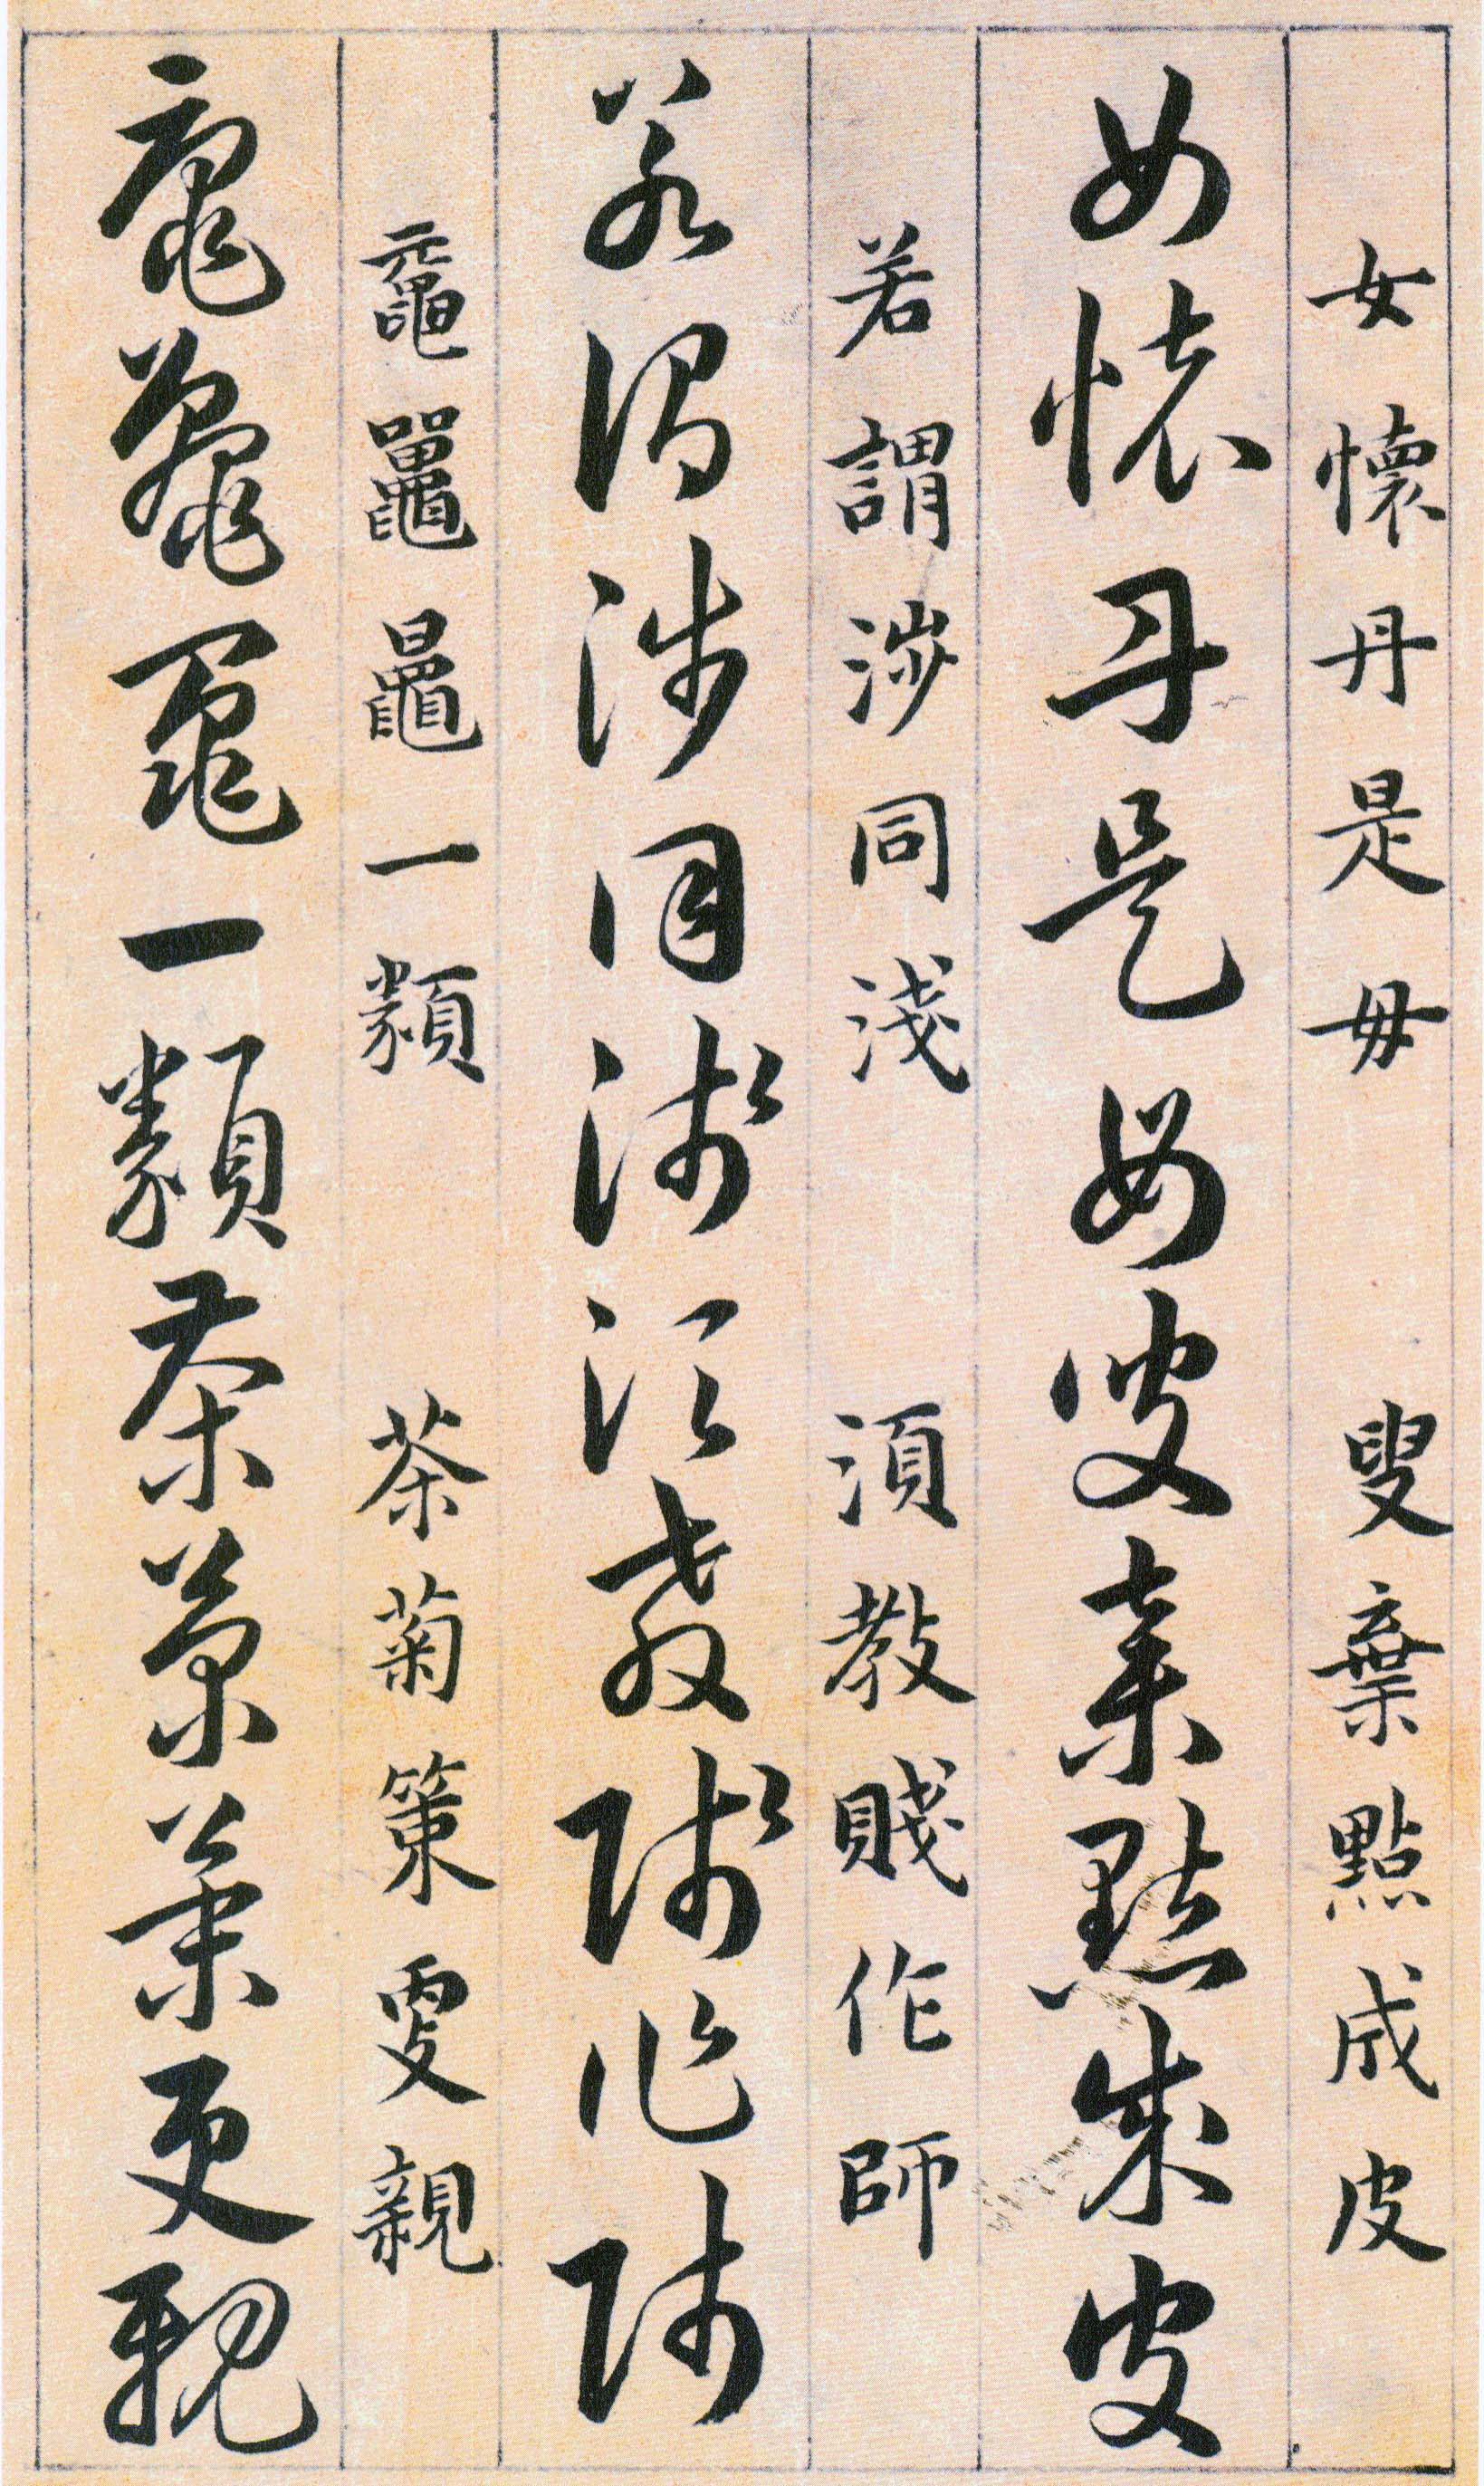 女懷丹是母 叟棄點成皮
女懷丹是母叟棄點成皮
若謂涉同淺 湏教賤作師
若謂涉同淺須教賤作師
黿鼉鼂一類 茶菊策更親
黿鼉鼂一類茶菊策更親